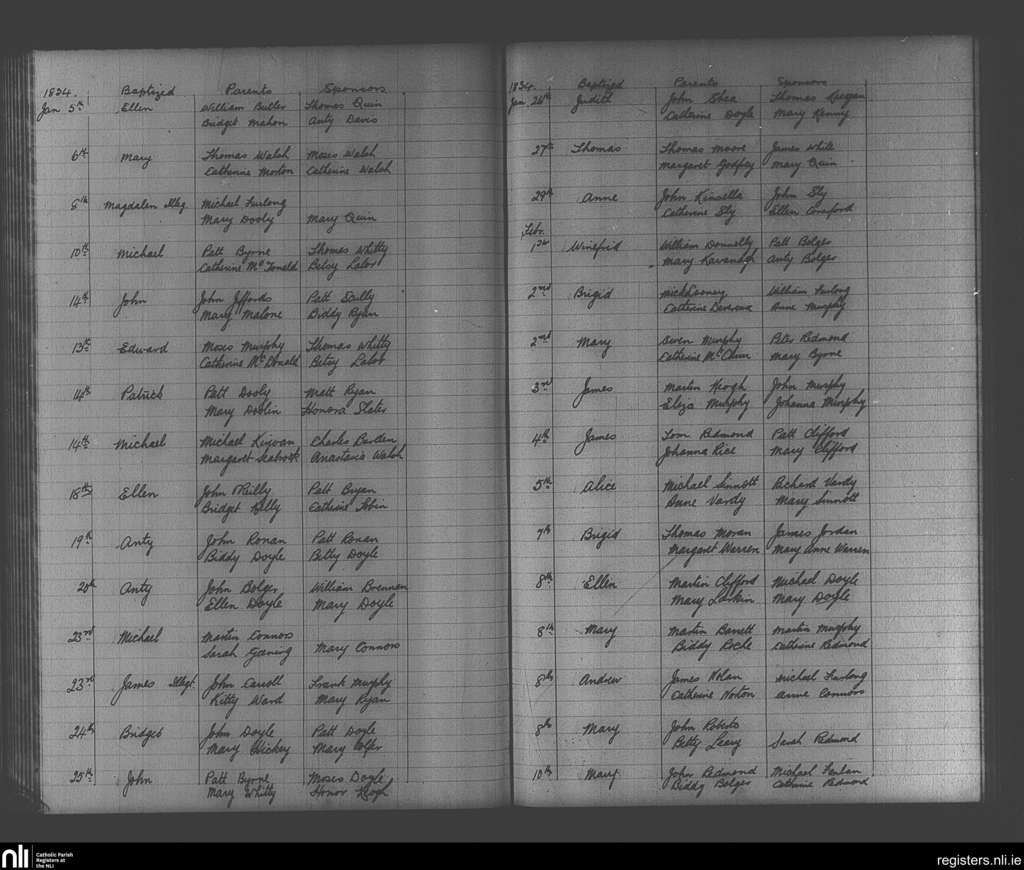 1834. Baptized Parents Sponsors
Jan 5th Ellen William Butler Thomas Quin
Bridget Mahon Anty Davis
6th Mary Thomas Walsh Moses Walsh
Catherine Morton Catherine Walsh
8th Magdalen Illeg. Michael Furlong
Mary Dooly Mary Quin
10th Michael Patt Byrne Thomas Whitty
Catherine McDonald Betsy Lalor
14th John John Jffords Patt Scully
Mary Malone Biddy Ryan
13th Edward Moses Murphy Thomas Whitty
Catherine McDonald Betsy Lalor
14th Patrick Patt Dooly Matt Ryan
Mary Doolin Honora Slater
14th Michael Michael Kirwan Charles Borden
Margaret Anastasia Walsh
18th Ellen John O'Reilly Patt Bryan
Bridget Kelly Catherine Tobin
19th Anty John Ronan Patt Ronan
Biddy Doyle Betty Doyle
20th Anty John Bolger William Brennan
Ellen Doyle Mary Doyle
23rd Michael Martin Connors
Sarah Mary Connors
23rd James Illegt. John Carroll Frank Murphy
Kitty Ward Mary Ryan
24th Bridget John Doyle Patt Doyle
Mary Hickey Mary Colfer
25th John Patt Byrne Moses Doyle
Mary Whitty Honor Keogh
1834. Baptized Parents Sponsors
Jan. 26th Judith John Shea Thomas Keegan
Catherine Doyle Mary Kenny
27th Thomas Thomas Moore James White
Margaret Godfrey Mary Quin
29th Anne John Kinsella John Sly
Catherine Sly Ellen Crosford
Febr.
1st Winefrid William Donnelly Patt Bolger
Mary Kavanagh Anty Bolger
2nd Brigid Nick Cooney William Furlong
Catherine Devereux Anne Murphy
2nd Mary Owen Murphy Peter Redmond
Catherine Mary Byrne
3rd James Martin Keogh John Murphy
Eliza Murphy Johanna Murphy
4th James Tom Redmond Patt Clifford
Johanna Rice Mary Clifford
5th Alice Michael Sinnott Richard Vardy
Anne Vardy Mary Sinnott
7th Brigid Thomas Moran James Jordan
Margaret Warren Mary Anne Warren
8th Ellen Martin Clifford Michael Doyle
Mary Larkin Mary Doyle
8th Mary Martin Barrett Martin Murphy
Biddy Roche Catherine Redmond
8th Andrew James Nolan Michael Furlong
Catherine Norton Anne Connors
8th Mary John Roberts
Betty Leary Sarah Redmond
10th Mary John Redmond Michael Fenlan
Biddy Bolger Catherine Redmond
nli Catholic Parish
Registers at
the NLI
registers.nli.ie